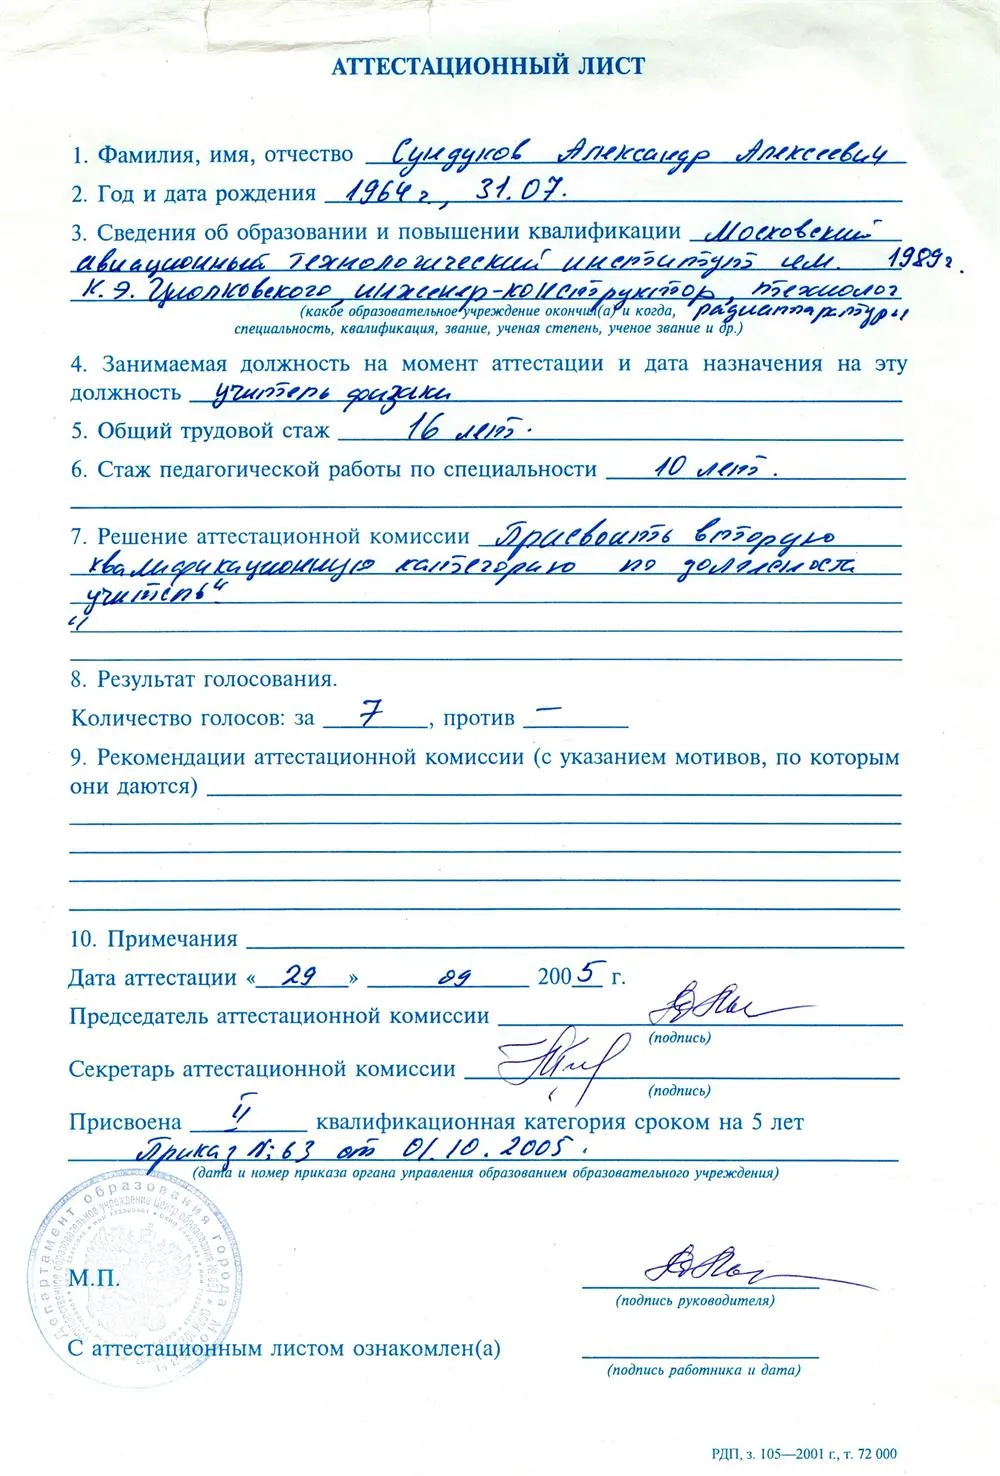 АТТЕСТАЦИОННЫЙ ЛИСТ
1. Фамилия, имя, отчество Сундуков Александр Алексеевич
2. Год и дата рождения 1964 г., 31.07.
3. Сведения об образовании и повышении квалификации Московский
авиационный технологический институт им. 1989 г.
К. Э. Циолковского, инженер-конструктор, технолог
(какое образовательное учреждение окончил(а) и когда, радиоаппаратуры
специальность, квалификация, звание, ученая степень, ученое звание и др.)
4. Занимаемая должность на момент аттестации и дата назначения на эту
должность учитель физики
5. Общий трудовой стаж 16 лет.
6. Стаж педагогической работы по специальности 10 лет.
7. Решение аттестационной комиссии Присвоить вторую
квалификационную категорию по должности
„учитель“
8. Результат голосования.
Количество голосов: за 7, против —
9. Рекомендации аттестационной комиссии (с указанием мотивов, по которым
они даются)
10. Примечания
Дата аттестации «29» 09 2005 г.
Председатель аттестационной комиссии
(подпись)
Секретарь аттестационной комиссии
(подпись)
Присвоена II квалификационная категория сроком на 5 лет
Приказ №: 63 от 01.10.2005.
(дата и номер приказа органа управления образованием образовательного учреждения)
Департамент образования города
М.П.
(подпись руководителя)
С аттестационным листом ознакомлен(а)
(подпись работника и дата)
РДП, з. 105—2001 г., т. 72 000